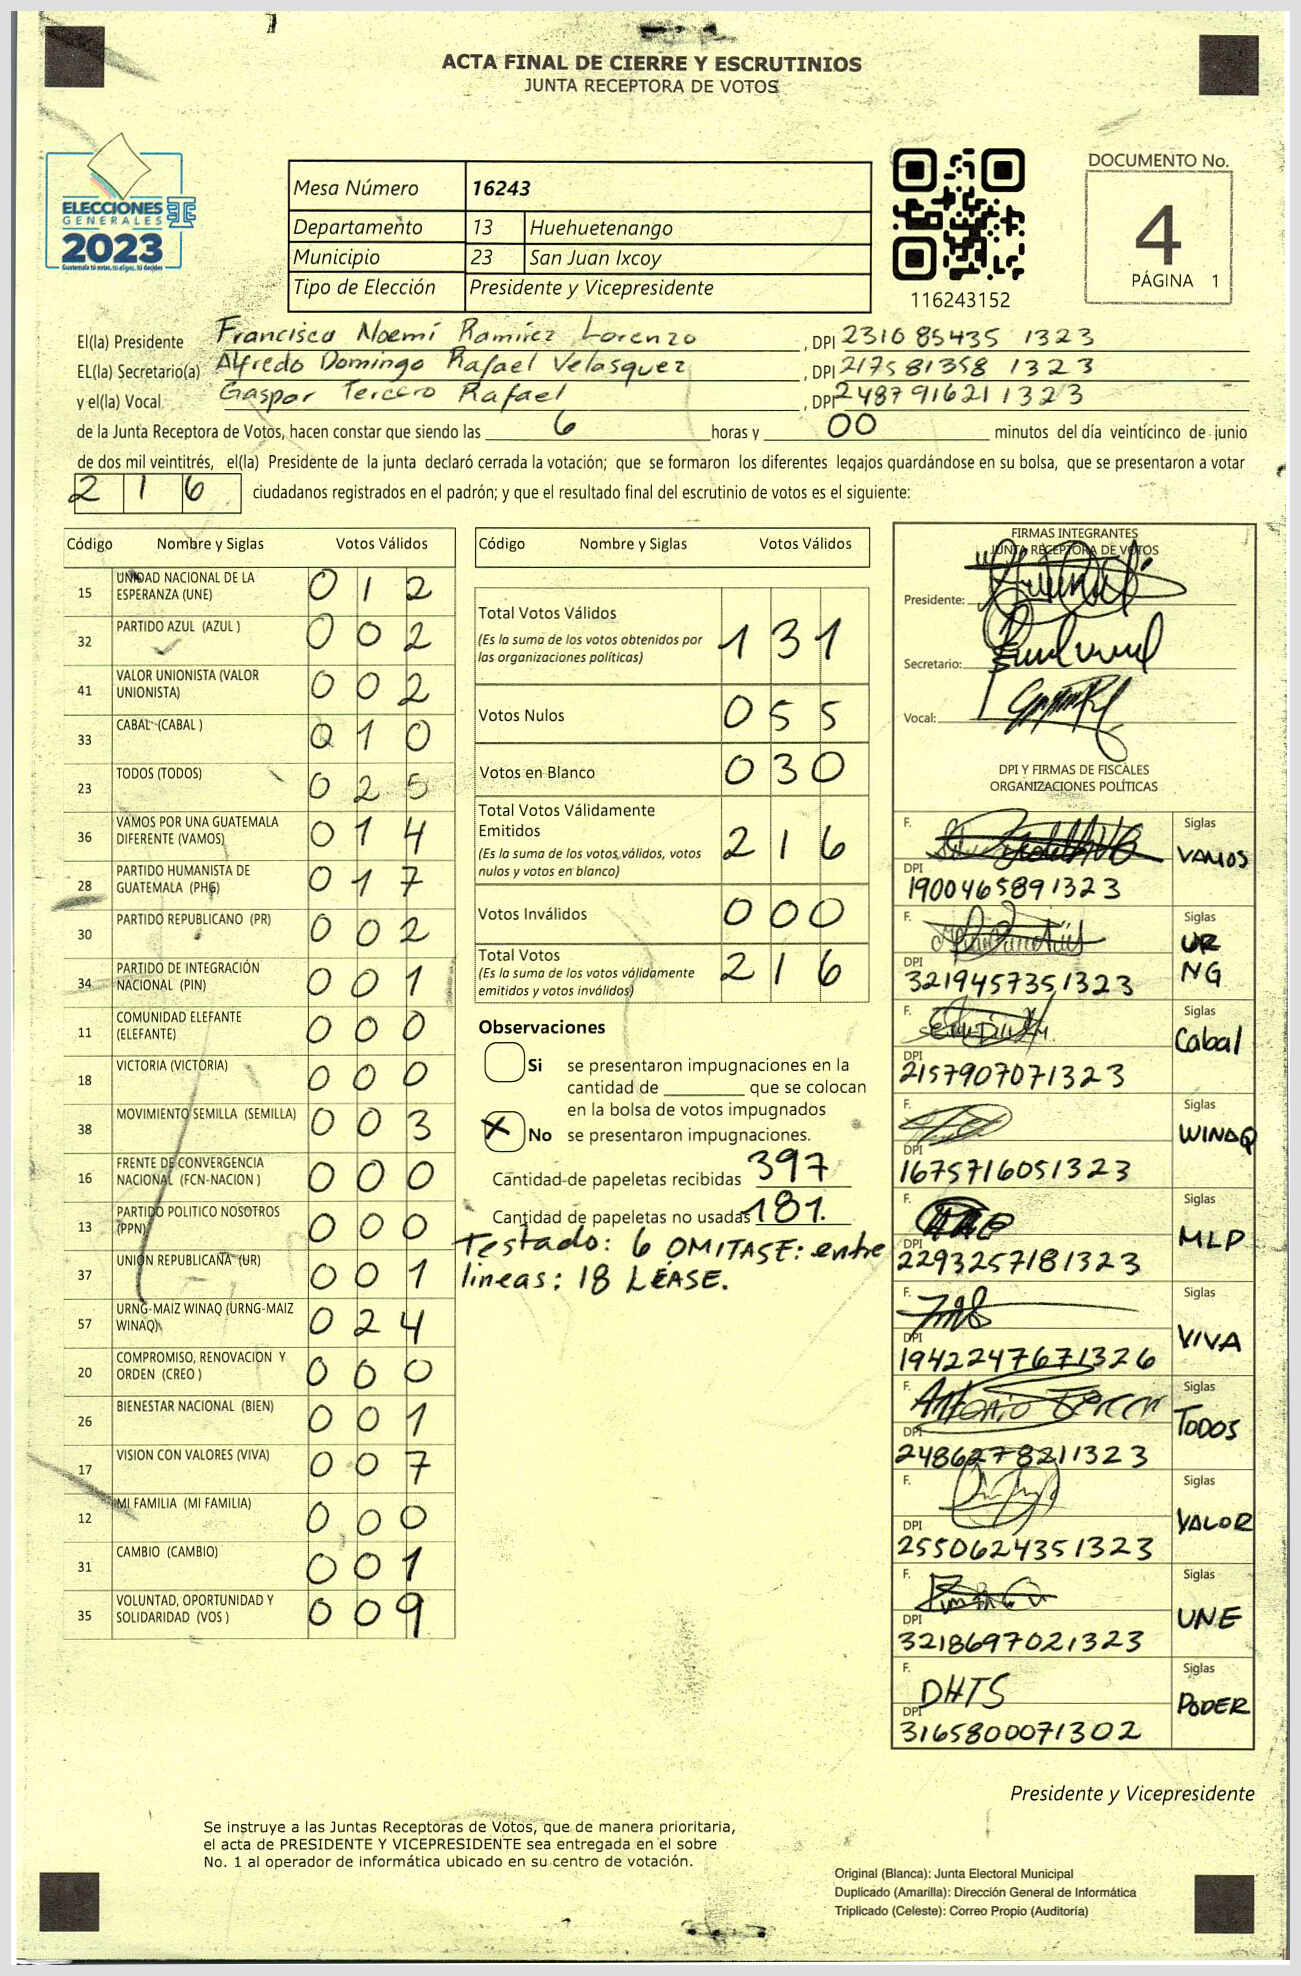 ACTA FINAL DE CIERRE Y ESCRUTINIOS
JUNTA RECEPTORA DE VOTOS
ELECCIONES
GENERALES
2023
Guatemala tú votas, tú eliges, tú decides
Mesa Número 16243
Departamento 13 Huehuetenango
Municipio 23 San Juan Ixcoy
Tipo de Elección Presidente y Vicepresidente
116243152
DOCUMENTO No.
4
PÁGINA 1
El(la) Presidente Francisca Noemí Ramírez Lorenzo , DPI 231085435 1323
EL(la) Secretario(a) Alfredo Domingo Rafael Velasquez , DPI 217581358 1323
y el(la) Vocal Gaspar Tercero Rafael , DPI 248791621 1323
de la Junta Receptora de Votos, hacen constar que siendo las 6 horas y 00 minutos del día veinticinco de junio
de dos mil veintitrés, el(la) Presidente de la junta declaró cerrada la votación; que se formaron los diferentes legajos guardándose en su bolsa, que se presentaron a votar
216 ciudadanos registrados en el padrón; y que el resultado final del escrutinio de votos es el siguiente:
Código Nombre y Siglas Votos Válidos
15 UNIDAD NACIONAL DE LA ESPERANZA (UNE) 012
32 PARTIDO AZUL (AZUL ) 002
41 VALOR UNIONISTA (VALOR UNIONISTA) 002
33 CABAL (CABAL ) 010
23 TODOS (TODOS) 025
36 VAMOS POR UNA GUATEMALA DIFERENTE (VAMOS) 014
28 PARTIDO HUMANISTA DE GUATEMALA (PHG) 017
30 PARTIDO REPUBLICANO (PR) 002
34 PARTIDO DE INTEGRACIÓN NACIONAL (PIN) 001
11 COMUNIDAD ELEFANTE (ELEFANTE) 000
18 VICTORIA (VICTORIA) 000
38 MOVIMIENTO SEMILLA (SEMILLA) 003
16 FRENTE DE CONVERGENCIA NACIONAL (FCN-NACION ) 000
13 PARTIDO POLITICO NOSOTROS (PPN) 000
37 UNION REPUBLICANA (UR) 001
57 URNG-MAIZ WINAQ (URNG-MAIZ WINAQ) 024
20 COMPROMISO, RENOVACION Y ORDEN (CREO ) 000
26 BIENESTAR NACIONAL (BIEN) 001
17 VISION CON VALORES (VIVA) 007
12 MI FAMILIA (MI FAMILIA) 000
31 CAMBIO (CAMBIO) 001
35 VOLUNTAD, OPORTUNIDAD Y SOLIDARIDAD (VOS ) 009
Código Nombre y Siglas Votos Válidos
Total Votos Válidos 131
(Es la suma de los votos obtenidos por
las organizaciones políticas)
Votos Nulos 055
Votos en Blanco 030
Total Votos Válidamente
Emitidos 216
(Es la suma de los votos válidos, votos
nulos y votos en blanco)
Votos Inválidos 000
Total Votos 216
(Es la suma de los votos válidamente
emitidos y votos inválidos)
Observaciones
Si se presentaron impugnaciones en la
cantidad de ________ que se colocan
en la bolsa de votos impugnados
X No se presentaron impugnaciones.
Cantidad de papeletas recibidas 397
Cantidad de papeletas no usadas 181.
Testado: 6 OMITASE: entre
lineas: 18 LEASE.
FIRMAS INTEGRANTES
JUNTA RECEPTORA DE VOTOS
Presidente:
Secretario:
Vocal:
DPI Y FIRMAS DE FISCALES
ORGANIZACIONES POLÍTICAS
F. Siglas VAMOS
DPI 1900465891323
F. Siglas UR NG
DPI 3219457351323
F. Siglas Cabal
DPI 2157907071323
F. Siglas WINAQ
DPI 1675716051323
F. Siglas MLP
DPI 2293257181323
F. Siglas VIVA
DPI 1942247671326
F. Siglas TODOS
DPI 2486278211323
F. Siglas VALOR
DPI 2550624351323
F. Siglas UNE
DPI 3218697021323
F. DHTS Siglas PODER
DPI 3165800071302
Presidente y Vicepresidente
Se instruye a las Juntas Receptoras de Votos, que de manera prioritaria,
el acta de PRESIDENTE Y VICEPRESIDENTE sea entregada en el sobre
No. 1 al operador de informática ubicado en su centro de votación.
Original (Blanca): Junta Electoral Municipal
Duplicado (Amarilla): Dirección General de Informática
Triplicado (Celeste): Correo Propio (Auditoría)